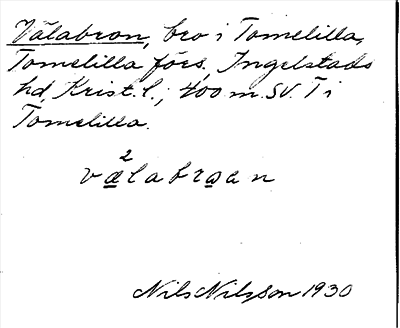 Välabron, bro i Tomelilla,
Tomelilla förs., Ingelstads
hd, Krist. l.; 400 m. SV. T i
Tomelilla.
2
välabroan
Nils Nilsson 1930